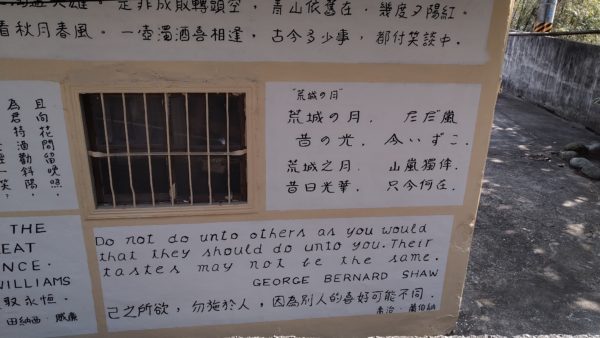 英雄。是非成敗轉頭空，青山依舊在，幾度夕陽紅。
看秋月春風。一壺濁酒喜相逢，古今多少事，都付笑談中。
且向花間留晚照．
為君持酒勸斜陽，
一笑
"荒城の月"
荒城の月． ただ嵐
昔の光． 今いずこ．
荒城之月． 山嵐獨伴．
昔日光華． 只今何在．
THE
EAT
NCE.
WILLIAMS
取永恒．
田納西．威廉
Do not do unto others as you would
that they should do unto you. Their
tastes may not be the same.
GEORGE BERNARD SHAW
己之所欲，勿施於人，因為別人的喜好可能不同．
喬治．蕭伯納